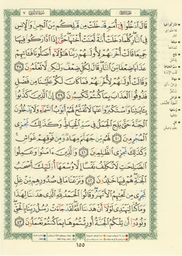 قَالَ ٱدْخُلُوا۟ فِىٓ أُمَمٍ قَدْ خَلَتْ مِن قَبْلِكُم مِّنَ ٱلْجِنِّ وَٱلْإِنسِ
فِى ٱلنَّارِ كُلَّمَا دَخَلَتْ أُمَّةٌ لَّعَنَتْ أُخْتَهَا حَتَّىٰٓ إِذَا ٱدَّارَكُوا۟ فِيهَا
جَمِيعًا قَالَتْ أُخْرَىٰهُمْ لِأُولَىٰهُمْ رَبَّنَا هَٰٓؤُلَآءِ أَضَلُّونَا فَـَٔاتِهِمْ
عَذَابًا ضِعْفًا مِّنَ ٱلنَّارِ قَالَ لِكُلٍّ ضِعْفٌ وَلَٰكِن لَّا تَعْلَمُونَ ٣٨
وَقَالَتْ أُولَىٰهُمْ لِأُخْرَىٰهُمْ فَمَا كَانَ لَكُمْ عَلَيْنَا مِن فَضْلٍ
فَذُوقُوا۟ ٱلْعَذَابَ بِمَا كُنتُمْ تَكْسِبُونَ ٣٩ إِنَّ ٱلَّذِينَ كَذَّبُوا۟
بِـَٔايَٰتِنَا وَٱسْتَكْبَرُوا۟ عَنْهَا لَا تُفَتَّحُ لَهُمْ أَبْوَٰبُ ٱلسَّمَآءِ وَلَا يَدْخُلُونَ
ٱلْجَنَّةَ حَتَّىٰ يَلِجَ ٱلْجَمَلُ فِى سَمِّ ٱلْخِيَاطِ وَكَذَٰلِكَ نَجْزِى
ٱلْمُجْرِمِينَ ٤٠ لَهُم مِّن جَهَنَّمَ مِهَادٌ وَمِن فَوْقِهِمْ غَوَاشٍ
وَكَذَٰلِكَ نَجْزِى ٱلظَّٰلِمِينَ ٤١ وَٱلَّذِينَ ءَامَنُوا۟ وَعَمِلُوا۟
ٱلصَّٰلِحَٰتِ لَا نُكَلِّفُ نَفْسًا إِلَّا وُسْعَهَآ أُو۟لَٰٓئِكَ أَصْحَٰبُ
ٱلْجَنَّةِ هُمْ فِيهَا خَٰلِدُونَ ٤٢ وَنَزَعْنَا مَا فِى صُدُورِهِم مِّنْ غِلٍّ
تَجْرِى مِن تَحْتِهِمُ ٱلْأَنْهَٰرُ وَقَالُوا۟ ٱلْحَمْدُ لِلَّهِ ٱلَّذِى هَدَىٰنَا لِهَٰذَا
وَمَا كُنَّا لِنَهْتَدِىَ لَوْلَآ أَنْ هَدَىٰنَا ٱللَّهُ لَقَدْ جَآءَتْ رُسُلُ رَبِّنَا بِٱلْحَقِّ
وَنُودُوٓا۟ أَن تِلْكُمُ ٱلْجَنَّةُ أُورِثْتُمُوهَا بِمَا كُنتُمْ تَعْمَلُونَ ٤٣
١٥٥